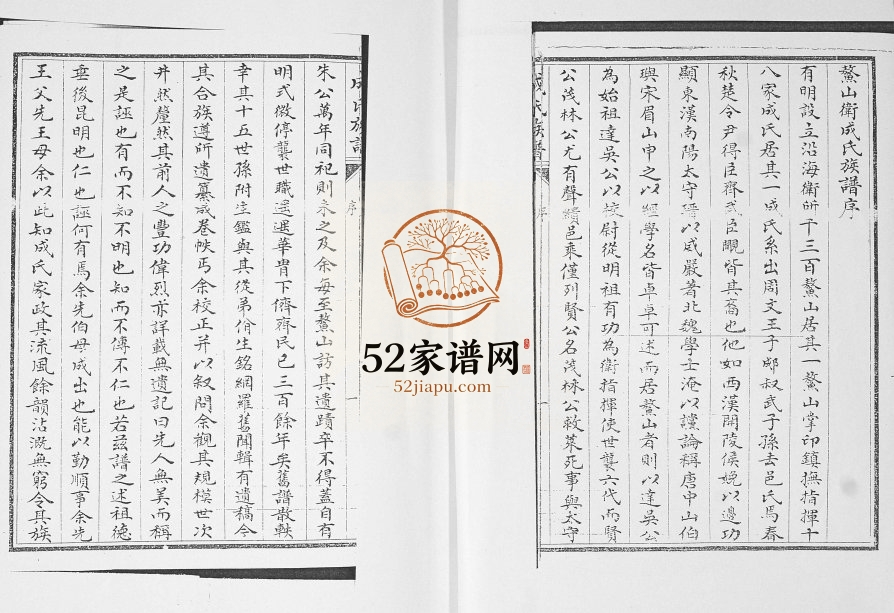 鰲山衛成氏族譜序
有明設立沿海衛所千三百鰲山居其一鰲山掌印鎮撫指揮千
八家成氏居其一成氏系出周文王子郕叔武子孫去邑氏焉春
秋楚令尹得臣齊武臣覵皆其裔也他如西漢開陵侯娩以邊功
顯東漢南陽太守瑨以威嚴著北魏學士淹以讜論稱唐中山伯
璵宋眉山申之以經學名皆卓卓可述而居鰲山者則以達吳公
為始祖達吳公以校尉從明祖有功為衛指揮使世襲六代而賢
公茂林公尤有聲續邑乘僅列賢公名茂林公救萊死事與太守
成氏族譜
序
朱公萬年同祀則未之及余每至鰲山訪其遺蹟卒不得蓋自有
明式微停襲世職遥遥華胄下儕齊民已三百餘年矣舊譜散軼
幸其十五世孫附生鑑與其從弟佾生銘網羅舊聞輯有遺稿今
其合族遵所遺纂成卷帙丐余校正并以叙問余觀其規模世次
井然釐然其前人之豐功偉烈亦詳載無遺記曰先人無美而稱
之是誣也有而不知不明也知而不傳不仁也若兹譜之述祖德
垂後昆明也仁也誣何有焉余先伯母成出也能以勤順事余先
王父先王母余以此知成氏家政其流風餘韻沾溉無窮令其族
成氏族譜
序
52家谱网
52jiapu.com